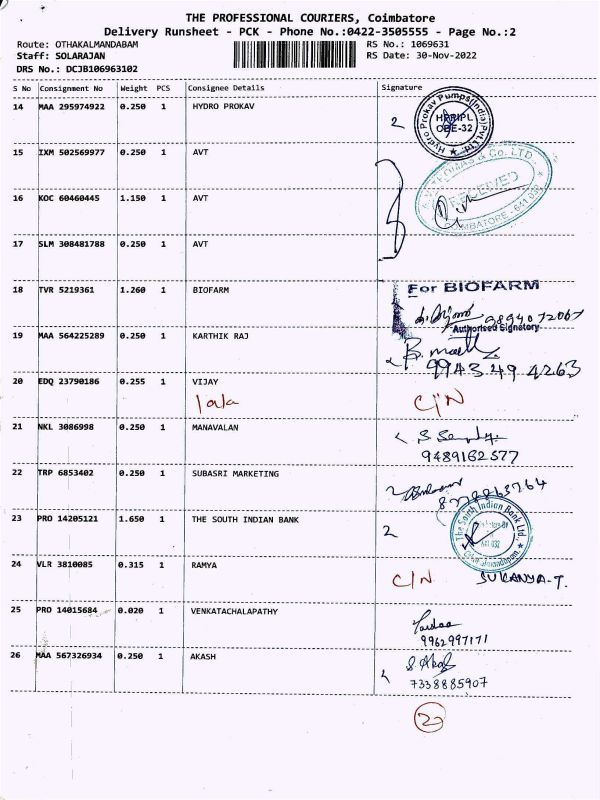 THE PROFESSIONAL COURIERS, Coimbatore
Delivery Runsheet - PCK - Phone No.:0422-3505555 - Page No.:2
Route: OTHAKALMANDABAM RS No.: 1069631
Staff: SOLARAJAN RS Date: 30-Nov-2022
DRS No.: DCJB106963102
S No Consignment No Weight PCS Consignee Details Signature
14 MAA 295974922 0.250 1 HYDRO PROKAV
Hydro Prokav Pumps(India)Pvt.Ltd
2
OBE-32
15 IXM 502569977 0.250 1 AVT
& Co. LTD.
RECEIVED
COIMBATORE - 641 032
16 KOC 60460445 1.150 1 AVT
17 SLM 308481788 0.250 1 AVT
18 TVR 5219361 1.260 1 BIOFARM
For BIOFARM
9894072067
Authorised Signatory
19 MAA 564225289 0.250 1 KARTHIK RAJ
9943494263
20 EDQ 23790186 0.255 1 VIJAY
C/N
21 NKL 3086998 0.250 1 MANAVALAN
9489162577
22 TRP 6853402 0.250 1 SUBASRI MARKETING
23 PRO 14205121 1.650 1 THE SOUTH INDIAN BANK
The South Indian Bank Ltd.
2
641 032
24 VLR 3810085 0.315 1 RAMYA
C/N SUKANYA-T.
25 PRO 14015684 0.020 1 VENKATACHALAPATHY
9962997171
26 MAA 567326934 0.250 1 AKASH
7338885907
2